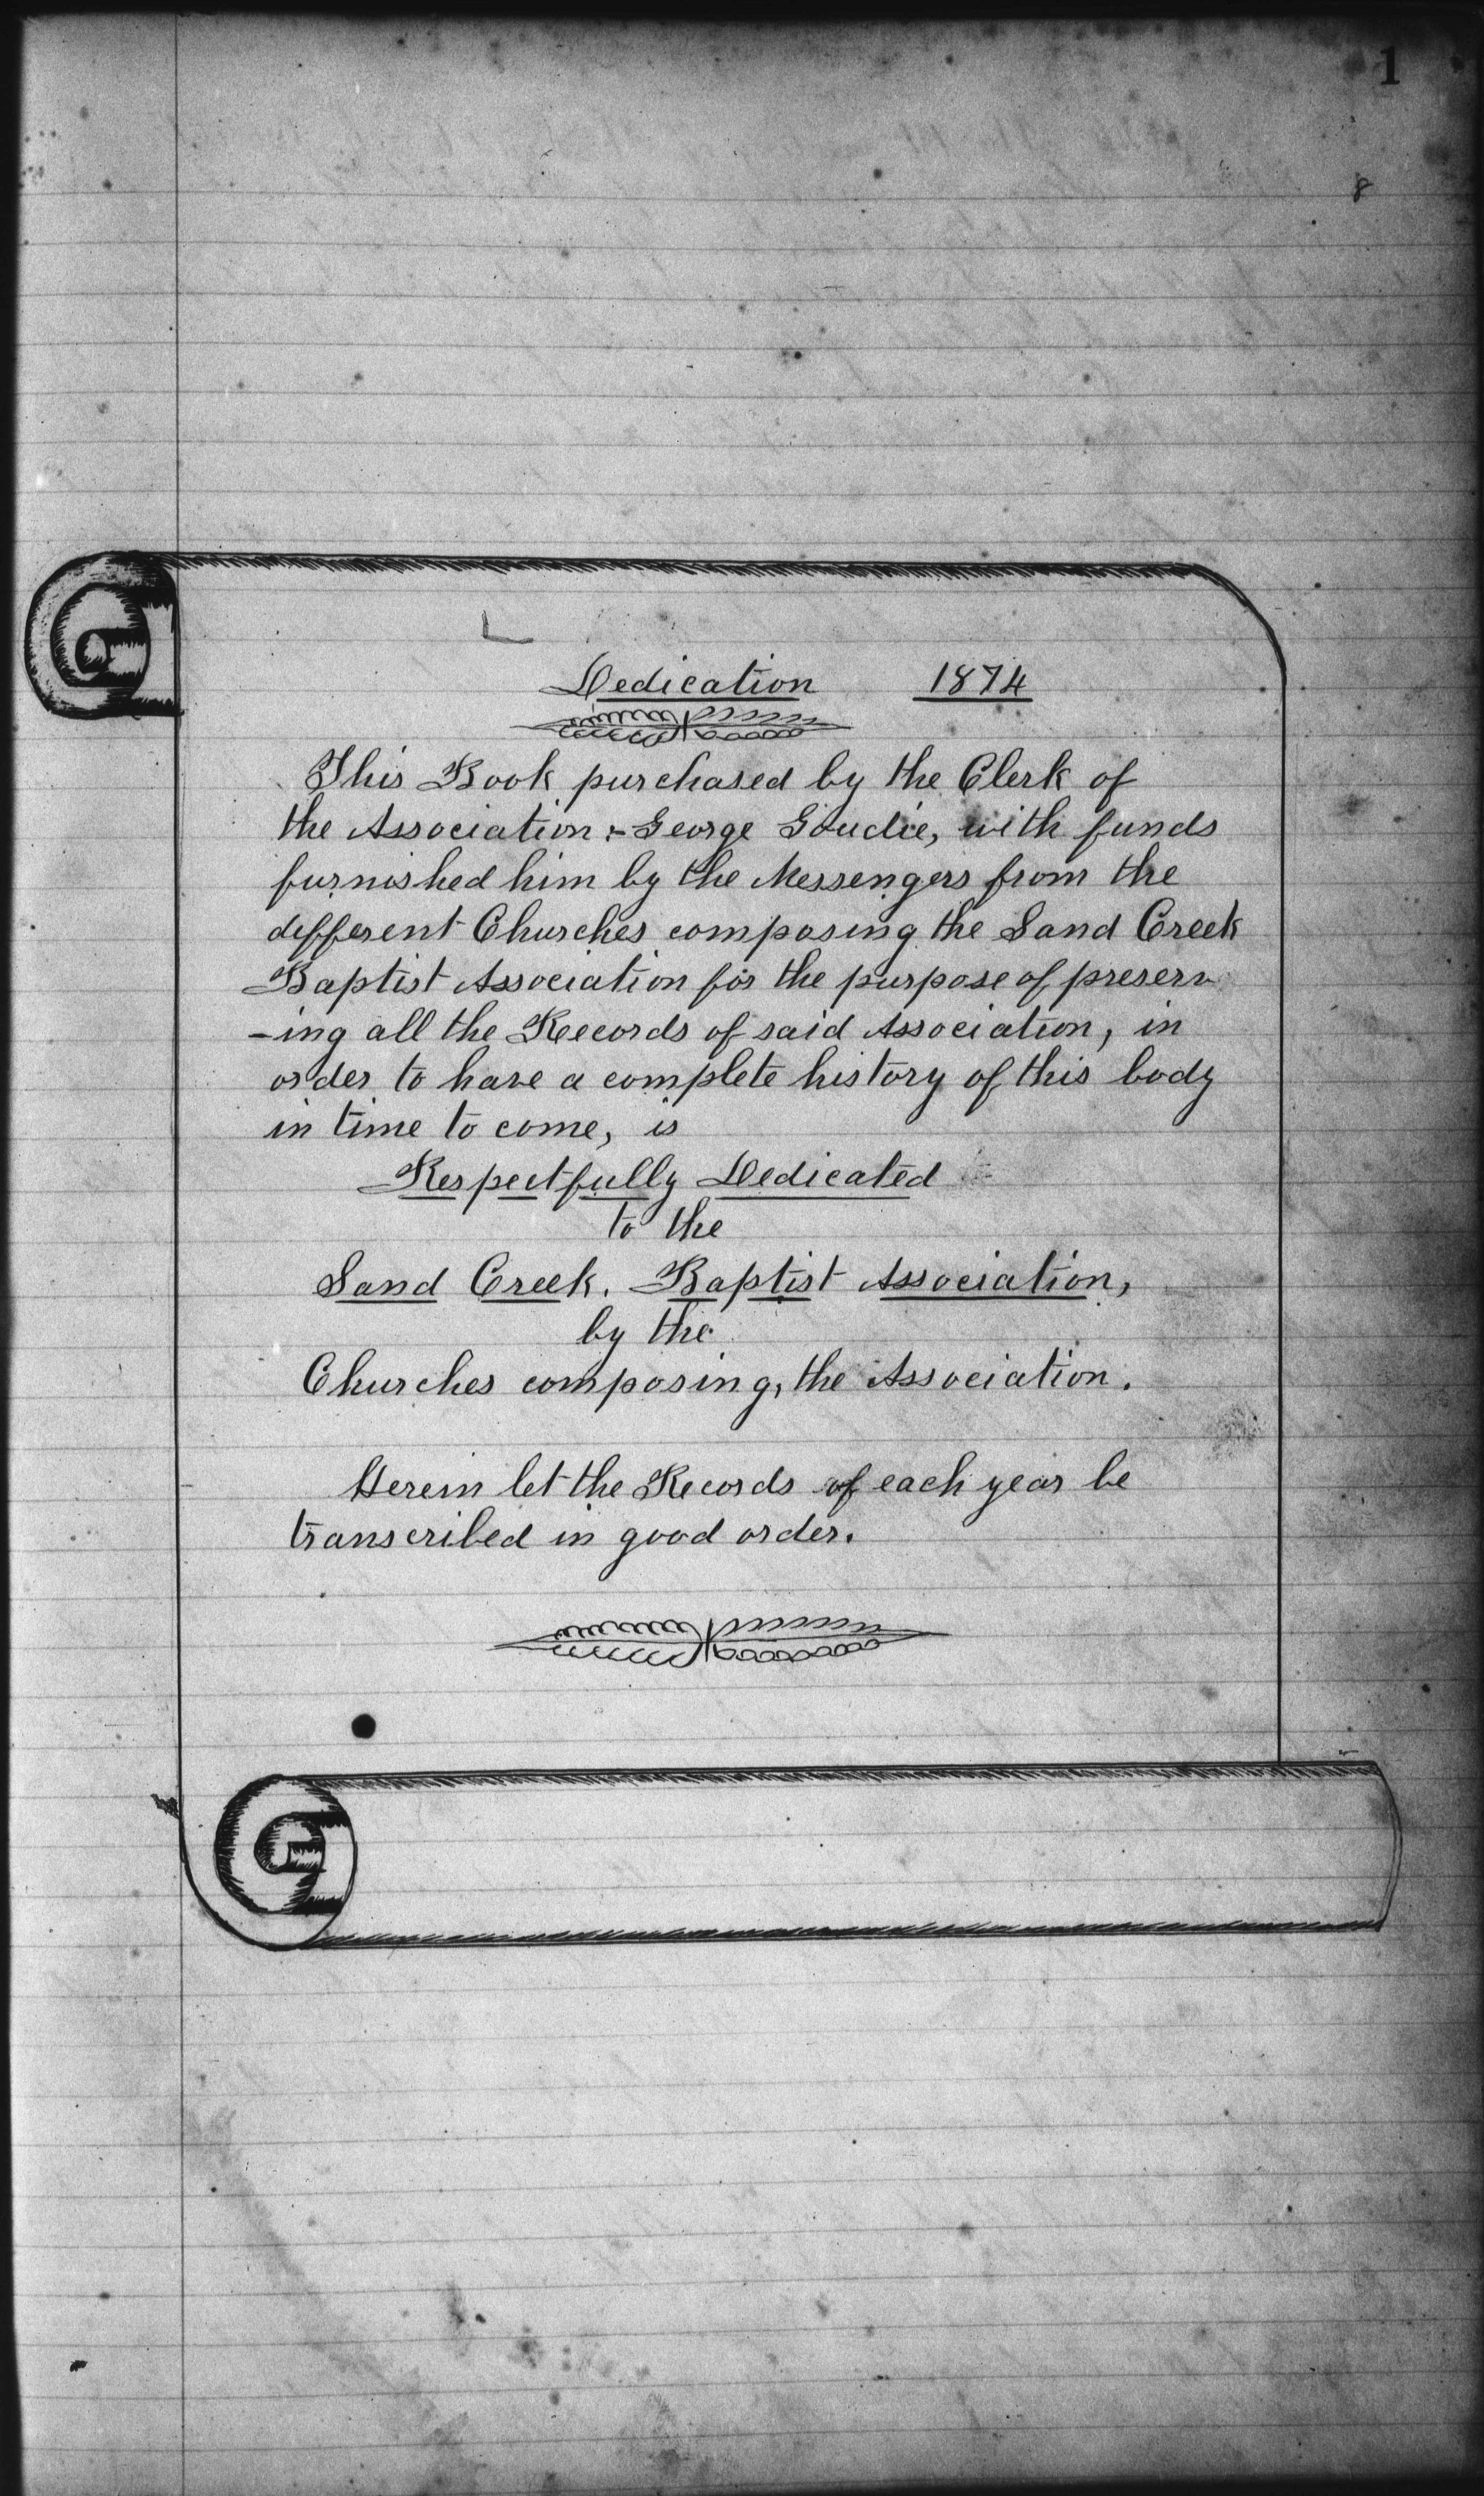 1
8
Dedication 1874
This Book purchased by the Clerk of
the Association :- George Goudie, with funds
furnished him by the Messengers from the
different Churches composing the Sand Creek
Baptist Association for the purpose of preserv
-ing all the Records of said Association, in
order to have a complete history of this body
in time to come, is
Respectfully Dedicated
to the
Sand Creek. Baptist Association,
by the
Churches composing, the Association.
Herein let the Records of each year be
transcribed in good order.